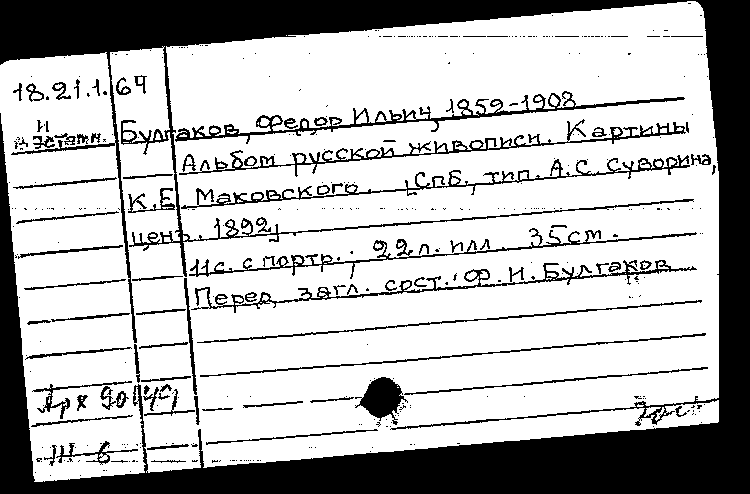 18.21.1.64
и эстамп.
Булгаков, Федор Ильич, 1852-1908
Альбом русской живописи. Картины
К.Е. Маковского. [Спб., тип. А.С. Суворина,
ценз. 1892].
11с. с портр.; 22л. илл. 35см.
Перед загл. сост.: Ф.И. Булгаков
Арх
III-6